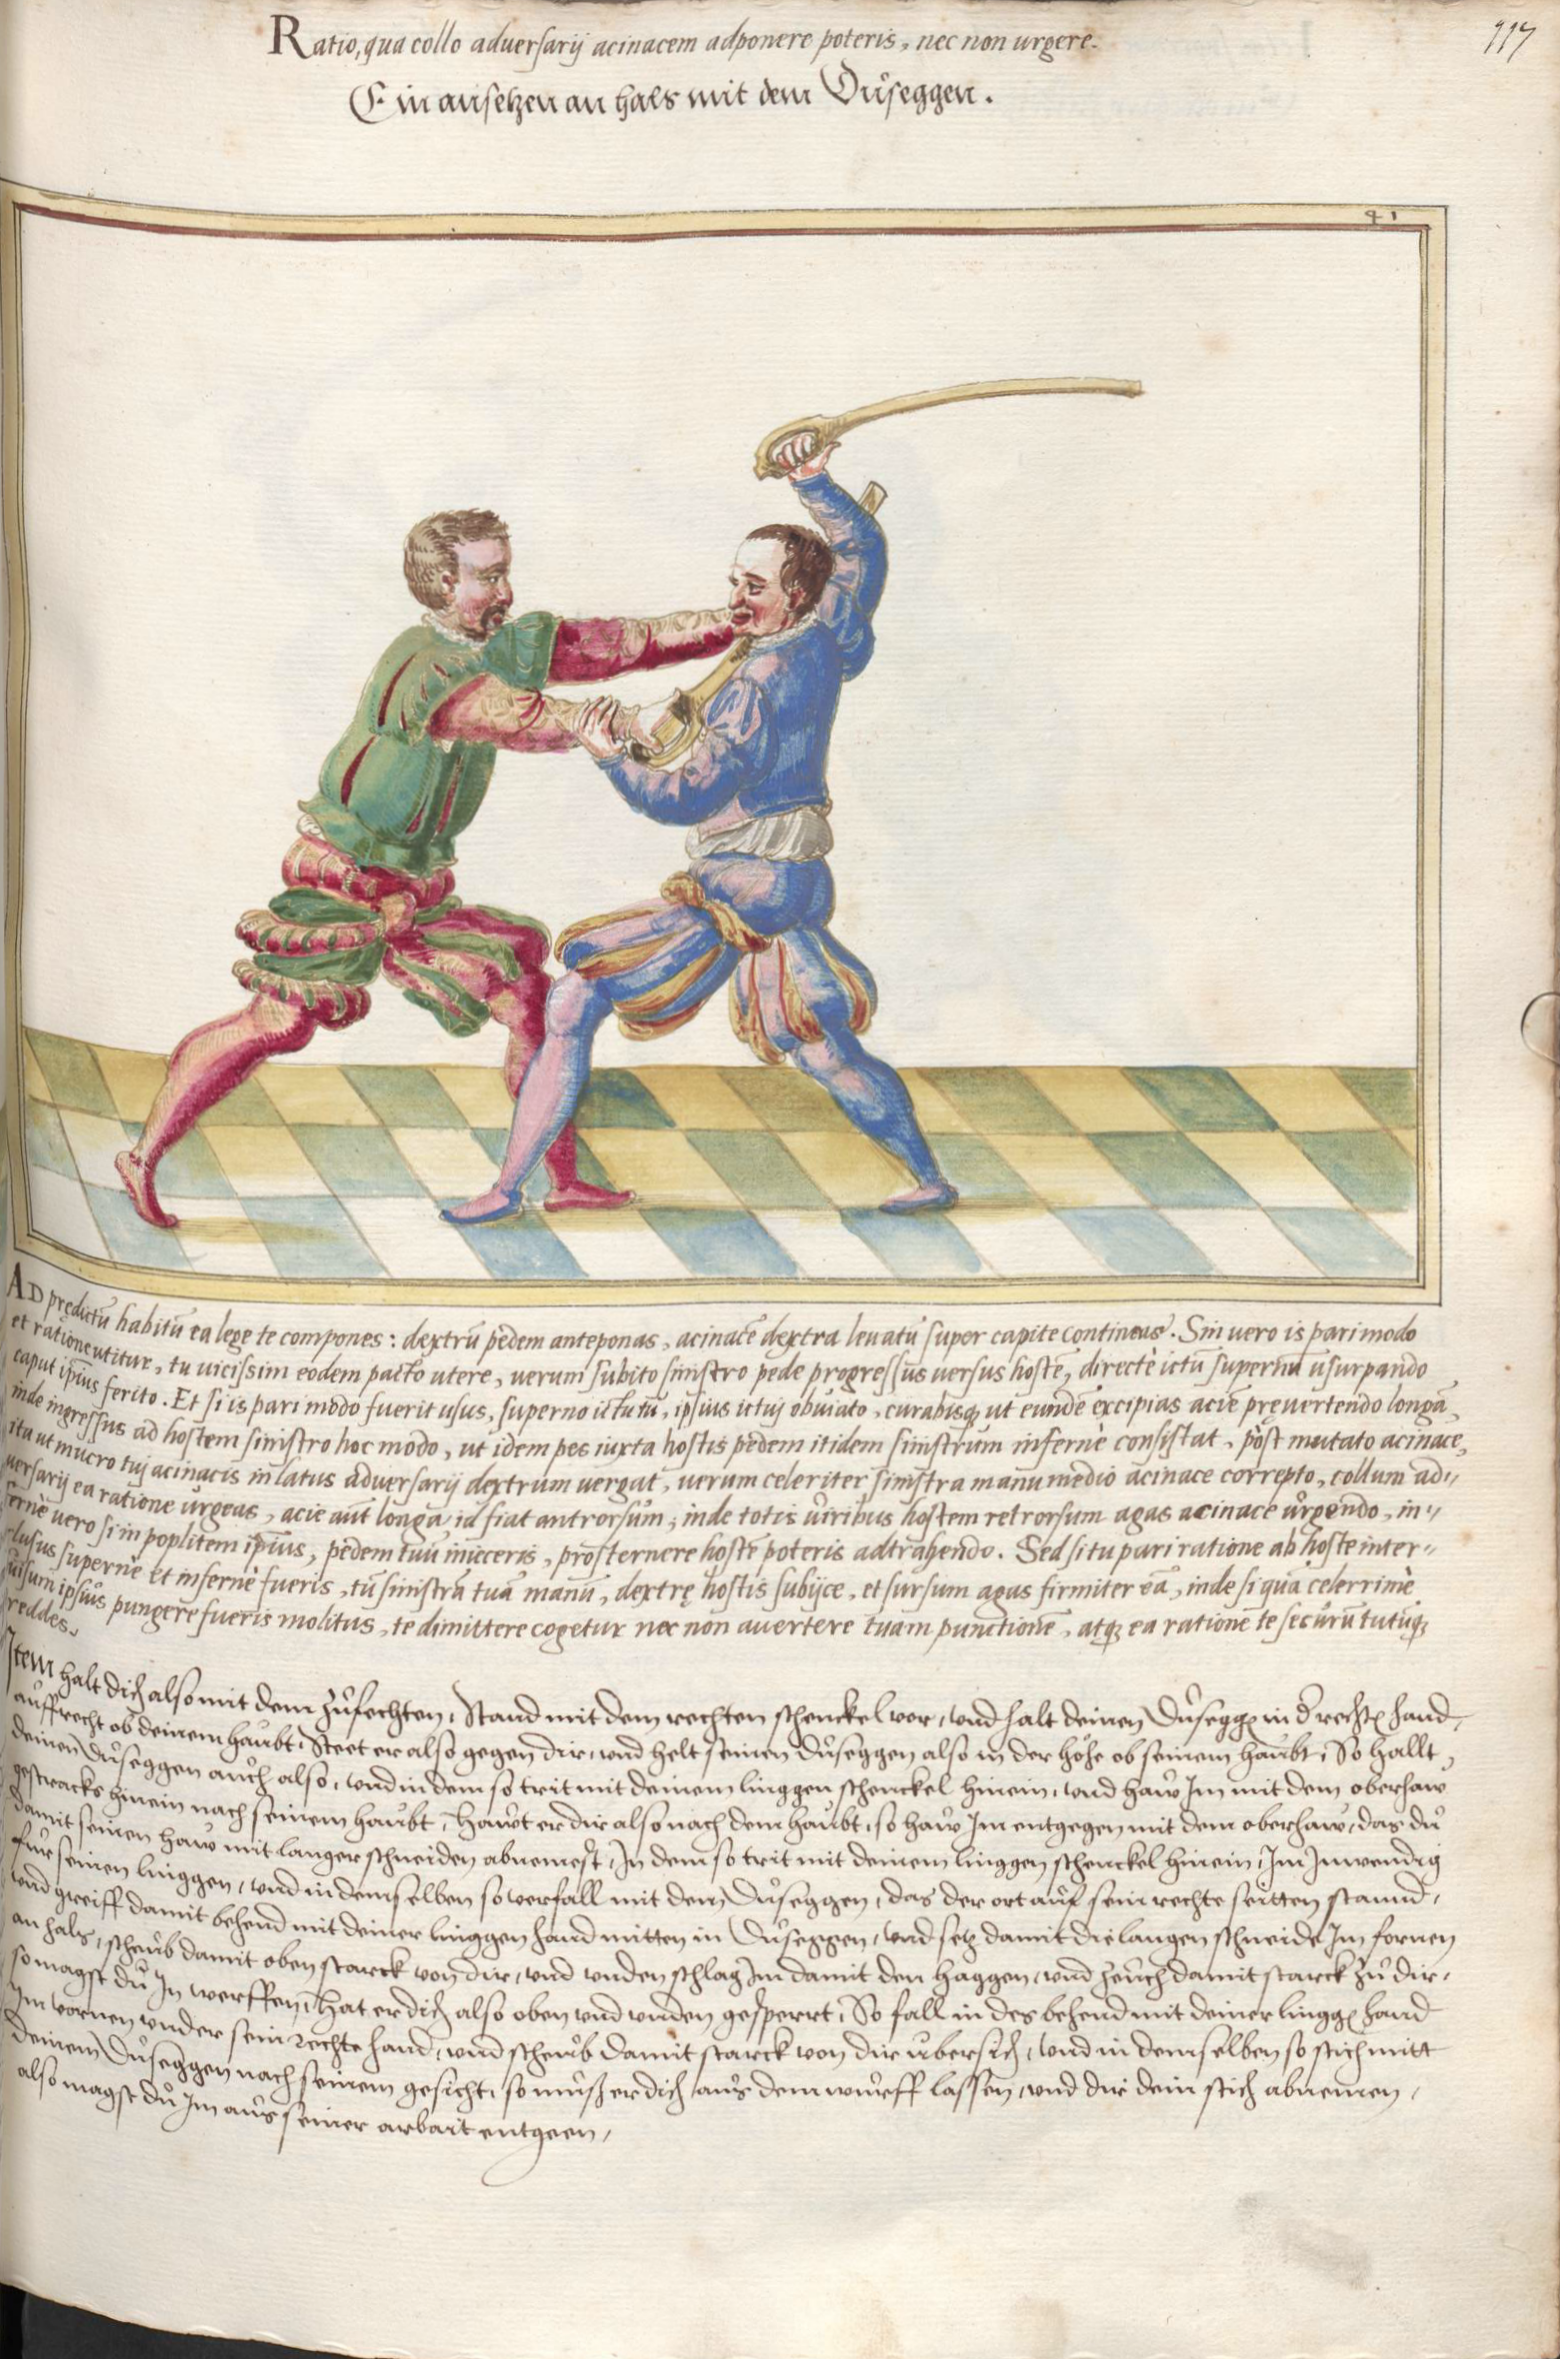 117
Ratio, qua collo adversarij acinacem adponere poteris, nec non urgere.
Ein ansetzen an hals mit dem Důseggen.
41
AD prędictũ habitũ ea lege te compones: dextrũ pedem anteponas, acinacẽ dextra levatũ super capite contineas. Sin vero is pari modo
et ratione utitur, tu vicissim eodem pacto utere, verum subito sinistro pede progressus versus hostẽ, directè ictũ supernũ usurpando
caput ipsius ferito. Et si is pari modo fuerit usus, superno ictu tũ, ipsius ictuj obviato, curabisq3 ut eundẽ excipias aciẽ pręvertendo longã,
inde ingressus ad hostem sinistro hoc modo, ut idem pes iuxta hostis pedem itidem sinistrum infernè consistat, pòst mutato acinace,
ita ut mucro tuj acinacis in latus adversarij dextrum vergat, verum celeriter sinistra manu medio acinace correpto, collum ad-
versarij ea ratione urgeas, acie aũt longa, id fiat antrorsum, inde totis viribus hostem retrorsum agas acinace urgendo, in-
fernè vero si in poplitem ipsius, pedem tuũ inieceris, prosternere hostẽ poteris adtrahendo. Sed si tu pari ratione ab hoste inter-
clusus supernè et infernè fueris, tũ sinistrã tuã manũ, dextrę hostis subijce, et sursum agas firmiter eã, inde si quã celerrimè
visum ipsius pungere fueris molitus, te dimittere cogetur nec non avertere tuam punctionẽ, atq3 ea ratione te securũ tutũq3
reddes.
Item halt dich also mit dem zůfechten, Stand mit dem rechten schenckel vor, und halt deinen Důsegg in d' recht hand,
auffrecht ob deinem haubt, Steet er also gegen dir, und helt seinen důseggen also in der höhe ob seinem haubt, So hallt
deinen důseggen auch also, und in dem so trit mit deinem linggen schenckel hinein, und haw Im mit dem oberhaw
gestracks hinein nach seinem haubt, Hawt er dir also nach dem haubt, so haw Im entgegen mit dem oberhaw, das dů
damit seinen haw mit langer schneiden abnemest, In dem so trit mit deinem linggen schenckel hinein, Im Inwendig
für seinen linggen, und in demselben so verfall mit dem Důseggen, das der ort auf sein rechte seitten stannd,
und greiff damit behend mit deiner linggen hand mitten in Důseggen, und setz damit die langen schneide Im fornen
an hals, scheub damit oben starck von dir, und unden schlag Im damit den haggen, und zeuch damit starck zů dir,
so magst dů In werffen, Hat er dich also oben und unden gesperrt, So fall in des behend mit deiner lingg hand
Im vornen under sein rechte hand, und scheub damit starck von dir ubersich, und in demselben so stich mitt
deinem Důseggen nach seinem gesicht, so můß er dich aus dem wurff lassen, und dir dein stich abnemen,
also magst dů Im aus seiner arbait entgeen,